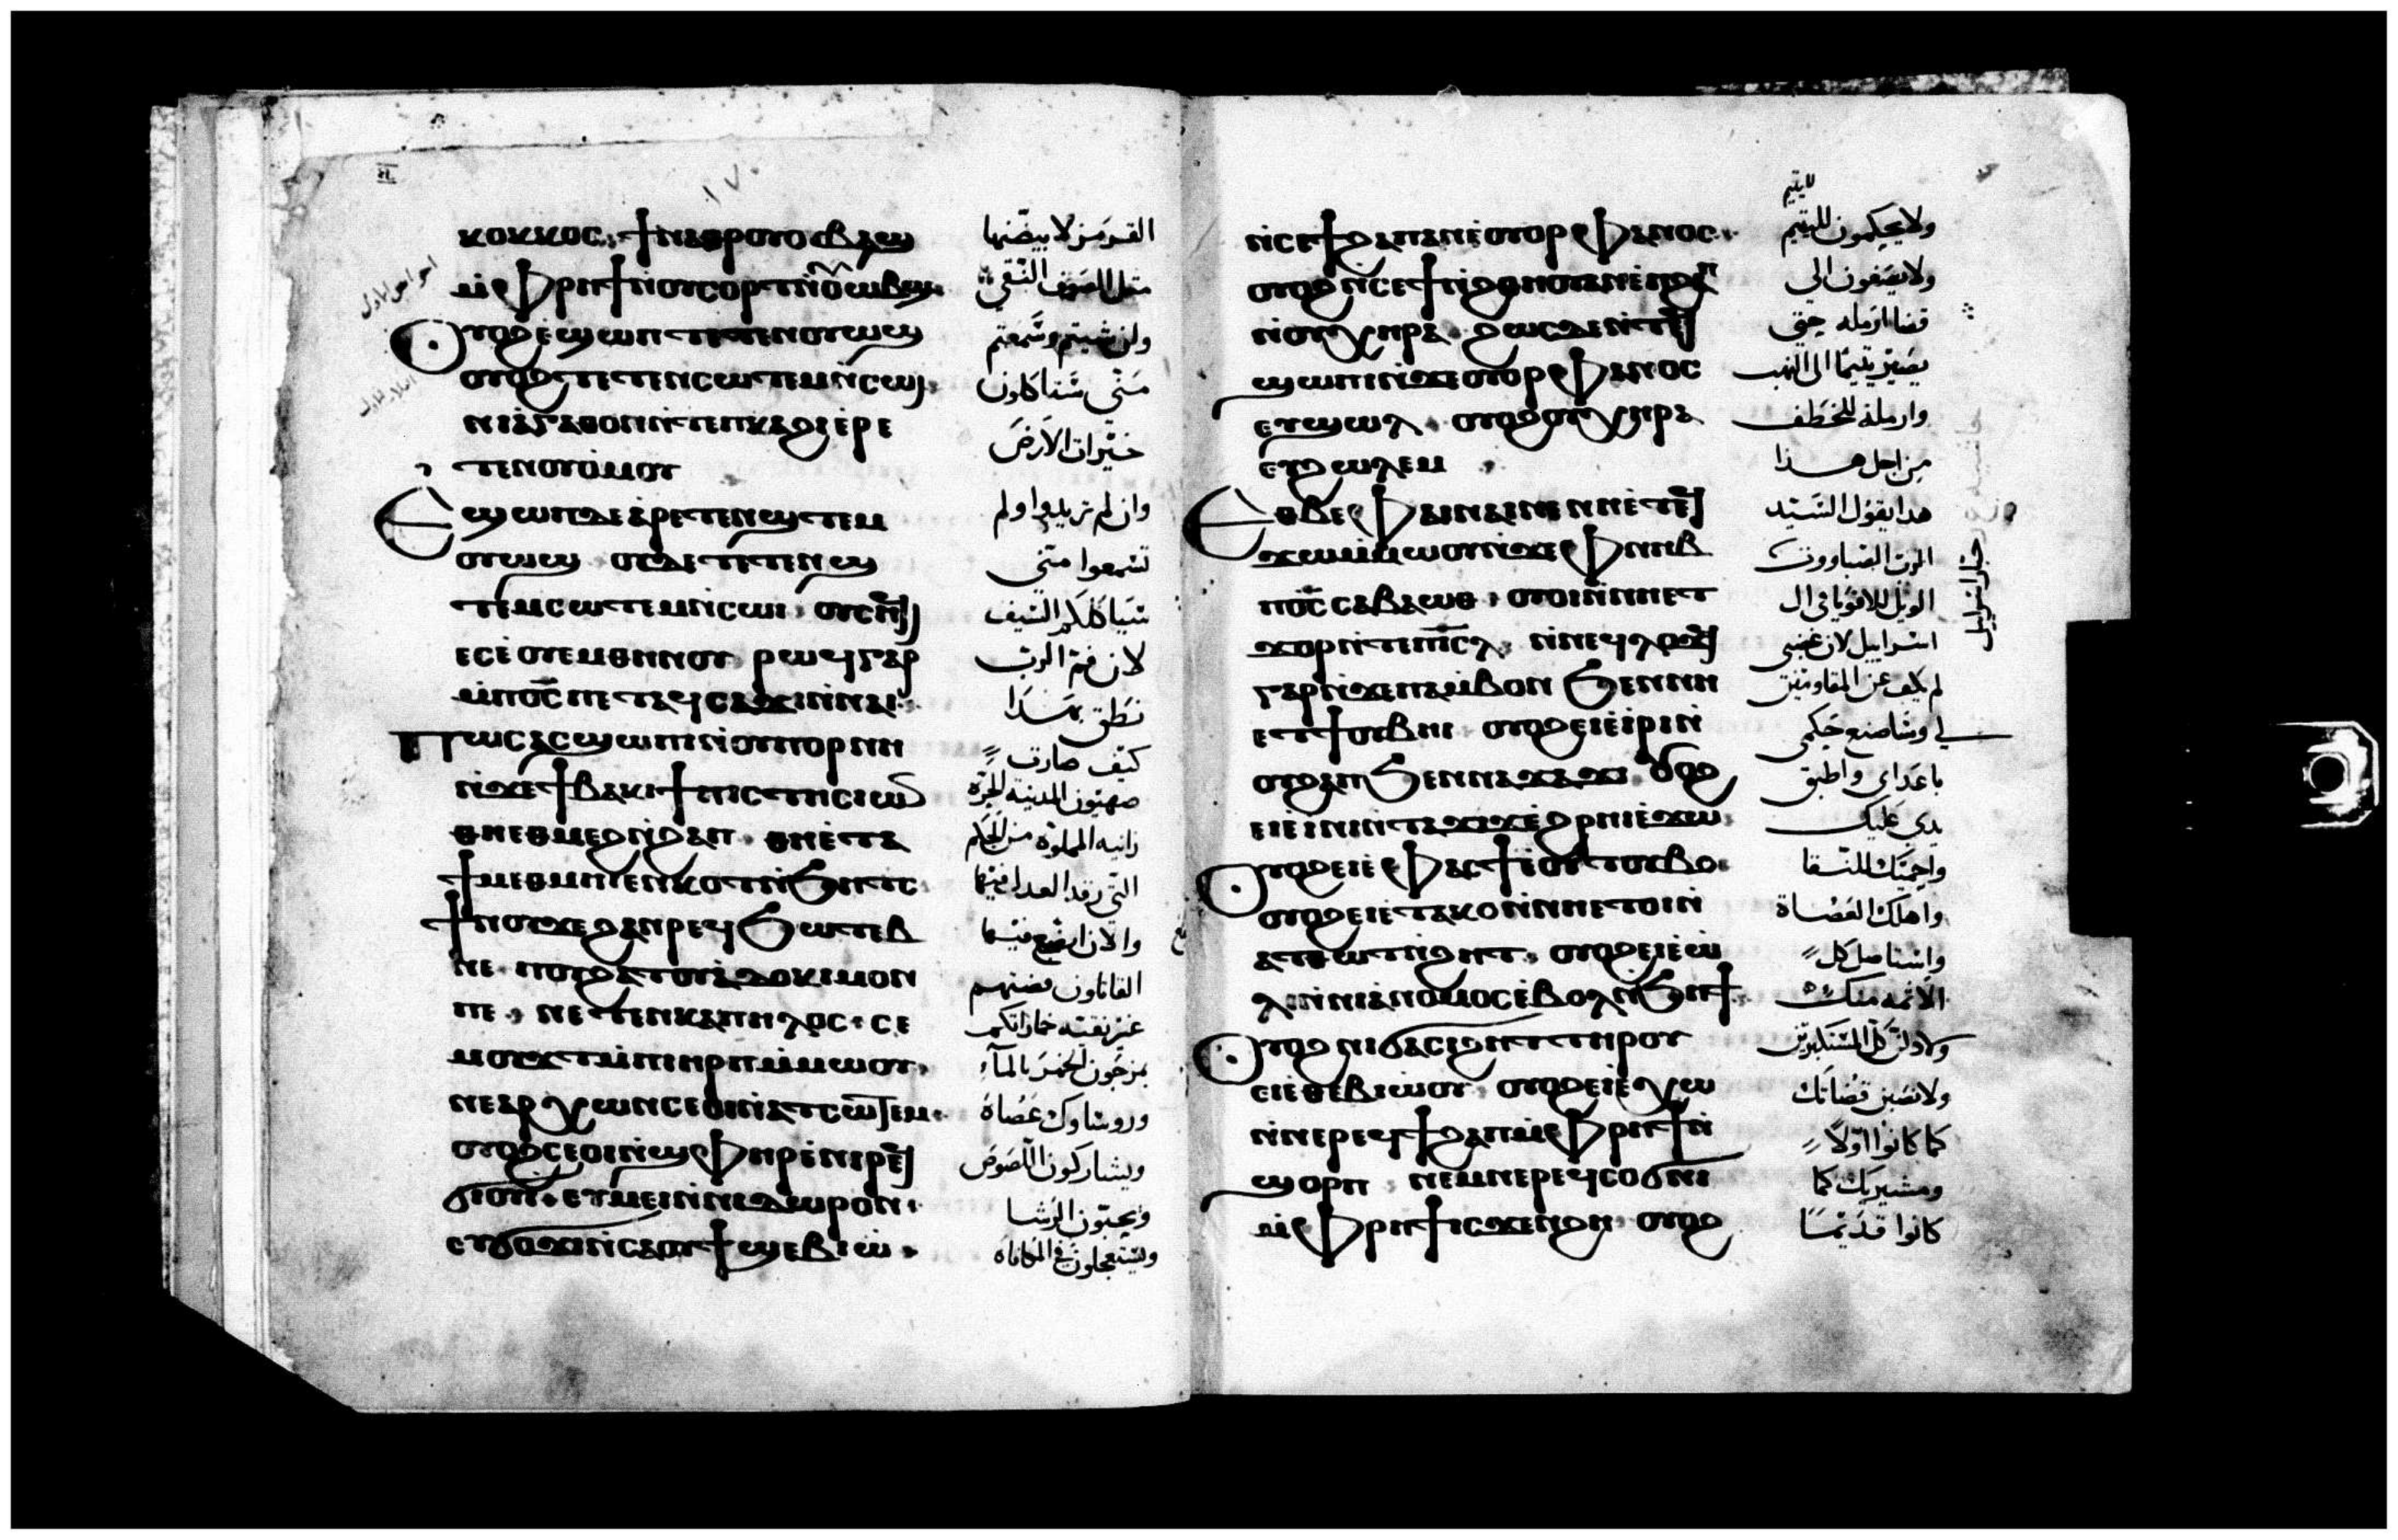 ⲕⲟⲕⲕⲟⲥ ϯⲛⲁⲑⲣⲟⲩⲟⲩⲃⲁϣ
ⲙ̀ⲫⲣⲏϯ ⲛ̀ⲟⲩⲥⲟⲣⲧ
ⲟⲩⲟϩ ⲉϣⲱⲡ ⲧⲉⲧⲉⲛⲟⲩⲱϣ
ⲟⲩⲟϩ ⲧⲉⲧⲉⲛⲥⲱⲧⲉⲙ ⲛ̀ⲥⲱⲓ
ⲛⲓⲁ̀ⲅⲁⲑⲟⲛ ⲛ̀ⲧⲉ ⲡⲕⲁϩⲓ ⲉ̀ⲣⲉ
ⲧⲉⲛⲟⲩⲟ̀ⲙⲟⲩ
ⲉϣⲱⲡ ⲇⲉ ⲁ̀ⲣⲉⲧⲉⲛϣⲧⲉⲙ
ⲟⲩⲱϣ ⲟⲩⲇⲉ ⲧⲉⲧⲉⲛϣ
ⲧⲉⲙⲥⲱⲧⲉⲙ ⲛ̀ⲥⲱⲓ ⲟⲩⲥⲏϥⲓ
ⲉⲥⲉ̀ⲟⲩⲉⲙ ⲑⲏⲛⲟⲩ ⲣⲱϥ ⲅⲁⲣ
ⲙ̀ⲡⲟ̅ⲥ̅ ⲡⲉⲧⲁϥⲥⲁϫⲓ ⲛ̀ⲛⲁⲓ
ⲡⲱⲥ ⲁⲥϣⲱⲡⲓ ⲛ̀ⲟⲩⲡⲟⲣⲛⲏ
ⲛ̀ϫⲉ ϯⲃⲁⲕⲓ ϯⲡⲓⲥⲧⲏ ⲥⲓⲱⲛ
ⲑⲏⲉⲑⲙⲉϩ ⲛ̀ϩⲁⲡ ⲑⲏⲉ̀ⲧⲁ
ϯⲙⲉⲑⲙⲏⲓ ⲉⲛⲕⲟⲧ ⲛ̀ϧⲏⲧⲥ
ϯⲛⲟⲩ ϫⲉ ϩⲁⲛⲣⲉϥϧⲱⲧⲉⲃ
ⲛⲉ ⲡⲟⲩϩⲁⲧ ⲟⲩⲁ̀ⲇⲟⲕⲓⲙⲟⲛ
ⲡⲉ ⲛⲉⲧⲉⲛⲕⲁⲡⲏⲗⲟⲥ ⲥⲉ
ⲙⲟⲩϫⲧ ⲙ̀ⲡⲓⲏⲣⲡ ⲙ̀ⲙⲱⲟⲩ
ⲛⲉⲁⲣⲭⲱⲛ ⲥⲉⲟⲓ ⲛ̀ⲁⲧⲥⲱⲧⲉⲙ
ⲟⲩⲟϩ ⲥⲉⲟⲓ ⲛ̀ϣⲫⲏⲣ ⲉ̀ⲛⲓⲣⲉϥ
ϭⲓⲟⲩⲓ ⲉⲩⲙⲉⲓ ⲛ̀ⲛⲓⲇⲱⲣⲟⲛ
ⲉⲩϭⲟϫⲓ ⲛ̀ⲥⲁ ⲟⲩϯϣⲉⲃⲓⲱ̀
القرمز لا بيضنها
مثل الصوف النقي
وان شيتم وسمعتم
مني شتاكلون
خيرات الارض
وان لم تريدوا ولم
تسمعوا مني
شياكلكم السيف
لان فم الرب
نطق بهدا
كيف صارت
صهيون المدينه الحره
زانيه المملوه من الحكم
التي رقد العدل فيها
والان
القاتلون فضتهم
غير نقيه خماراتكم
يمزجون الخمر بالمآء
وروساوك عصاة
ويشاركون اللصوص
ويحبون الرشا
ويستعجلون في المكافاه
ⲛⲥⲉϯϩⲁⲡ ⲁⲛ ⲉ̀ⲟⲩⲟⲣⲫⲁⲛⲟⲥ
ⲟⲩⲟϩ ⲛⲥⲉϯ ⲛ̀ϩⲑⲏⲟⲩ ⲁⲛ ⲉ̀ⲡϩⲁⲡ
ⲛ̀ⲟⲩⲭⲏⲣⲁ ϩⲱⲥⲇⲉ ⲛ̀ⲧⲉϥ
ϣⲱⲡⲓ ⲛ̀ϫⲉ ⲟⲩⲟⲣⲫⲁⲛⲟⲥ
ⲉⲩϣⲱⲗ ⲟⲩⲟϩ ⲟⲩⲭⲏⲣⲁ
ⲉⲩϩⲱⲗⲉⲙ
ⲉⲑⲃⲉ ⲫⲁⲓ ⲛⲁⲓ ⲛⲉ ⲛⲏⲉ̀ⲧⲉϥ
ϫⲱ ⲙ̀ⲙⲱⲟⲩ ⲛ̀ϫⲉ ⲫⲛⲏⲃ
ⲡⲟ̅ⲥ̅ ⲥⲁⲃⲁⲱⲑ ⲟⲩⲟⲓ ⲛ̀ⲛⲏⲉⲧ
ϫⲟⲣ ⲛ̀ⲧⲉ ⲡⲓ̅ⲥ̅ⲗ̅ ⲛ̀ⲛⲉϥⲗⲟϫϥ
ⲅⲁⲣ ⲛ̀ϫⲉ ⲡⲁⲙ̀ⲃⲟⲛ ϧⲉⲛ ⲛⲏ
ⲉⲧϯ ⲟⲩⲃⲏⲓ ⲟⲩⲟϩ ⲉⲓⲉ̀ⲓⲣⲓ ⲛ̀
ⲟⲩϩⲁⲡ ϧⲉⲛ ⲛⲁϫⲁϫⲓ ⲟⲩⲟϩ
ⲉⲓⲉ̀ⲓⲛⲓ ⲛ̀ⲧⲁϫⲓϫ ⲉ̀ϩⲣⲏⲓ ⲉ̀ϫⲱ
ⲟⲩⲟϩ ⲉⲓⲉ̀ⲫⲁⲥϯ ⲉ̀ⲟⲩⲧⲟⲩⲃⲟ
ⲟⲩⲟϩ ⲉⲓⲉ̀ⲧⲁⲕⲟ ⲛ̀ⲛⲏⲉⲧⲟⲓ ⲛ̀
ⲁⲧⲑⲱⲧ ⲛ̀ϩⲏⲧ ⲟⲩⲟϩ ⲉⲓⲉ̀ⲱ̀
ⲗⲓ ⲛ̀ⲛⲓⲁ̀ⲛⲟⲙⲟⲥ ⲉ̀ⲃⲟⲗ ⲛ̀ϧⲏϯ
ⲟⲩⲟϩ ⲛⲓϭⲁⲥⲓϩⲏⲧ ⲧⲏⲣⲟⲩ
ⲉⲓⲉ̀ⲑⲉⲃⲓⲱ̀ⲟⲩ ⲟⲩⲟϩ ⲉⲓⲉ̀ⲭⲱ
ⲛ̀ⲛⲉⲣⲉϥϯϩⲁⲡ ⲙ̀ⲫⲣⲏϯ ⲛ̀
ϣⲟⲣⲡ ⲛⲉⲙ ⲛⲉⲣⲉϥⲥⲟϭⲛⲓ
ⲙ̀ⲫⲣⲏϯ ⲓⲥϫⲉⲛ ϩⲏ ⲟⲩⲟϩ
ولا يحكمون لليتيم
ولا يصغون الي
قضا ارمله حتي
يصير يتيما الي النهب
وارملة للخطف
من اجل هدا
هدا يقول السيد
الرب الصباووت
الويل للاقويا في ال
اسراييل لان غضبي
لم يكف عن المقاومين
لي وساصنع حكمي
باعداي واطبق
يدي عليك
واحميك للنقا
واهلك العصاة
واستاصل كل
الاثمه منك
ولادلن كل المستكبرين
ولانصبن قضاتك
كما كانوا اولاً
ومشيريك كما
كانوا قديما